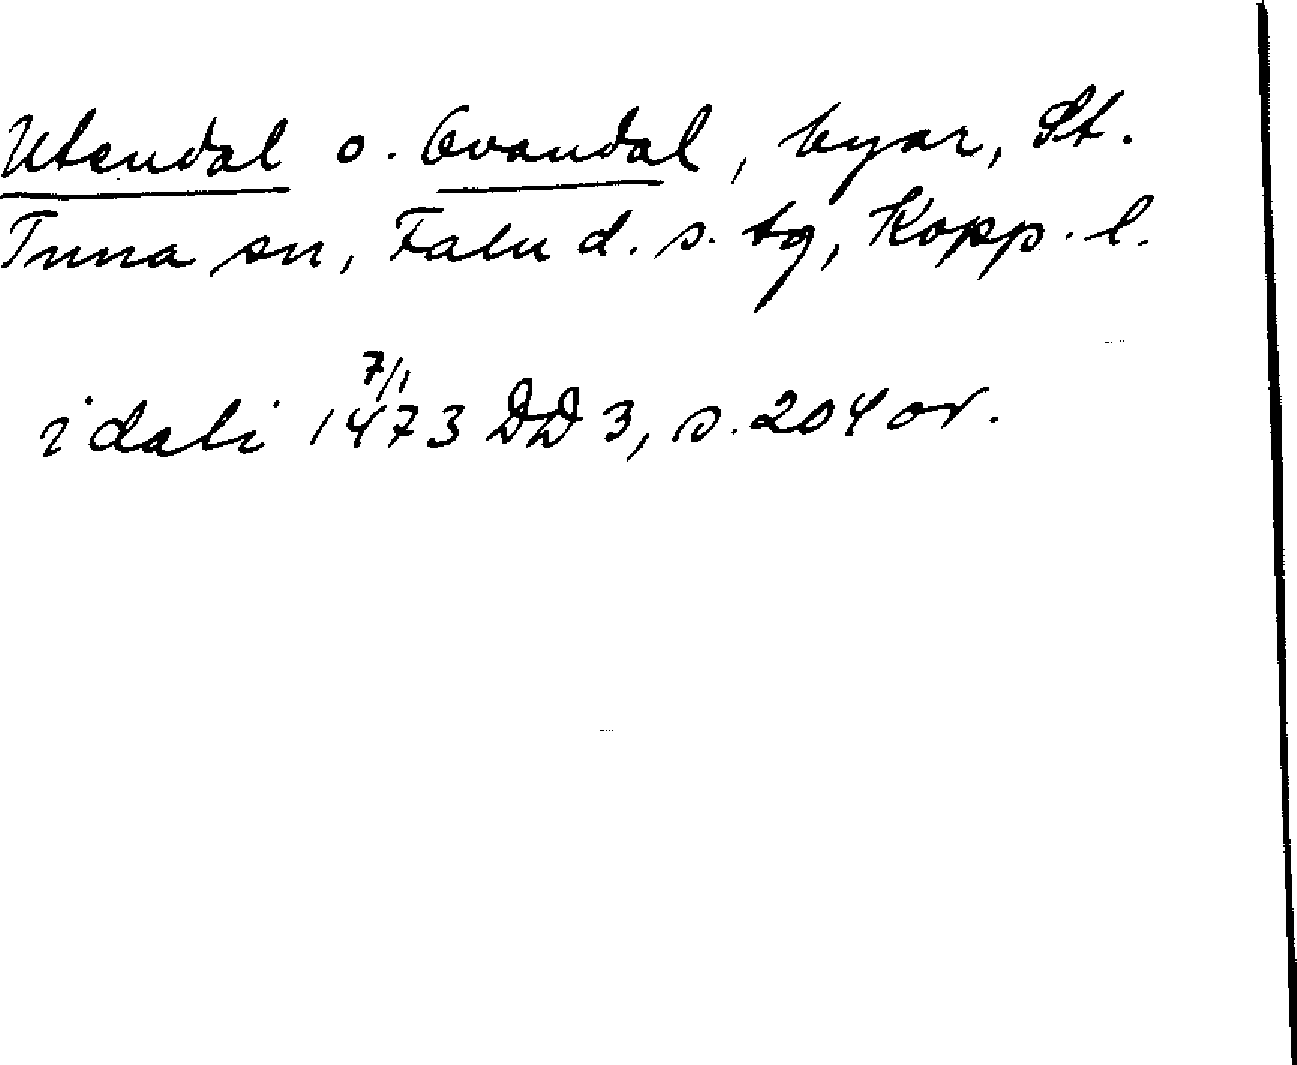 Utendal o. Ovandal, byar, St.
Tuna sn, Falu d. s. tg, Kopp. l.
i dali 7/1 1473 DD 3, s. 204 or.